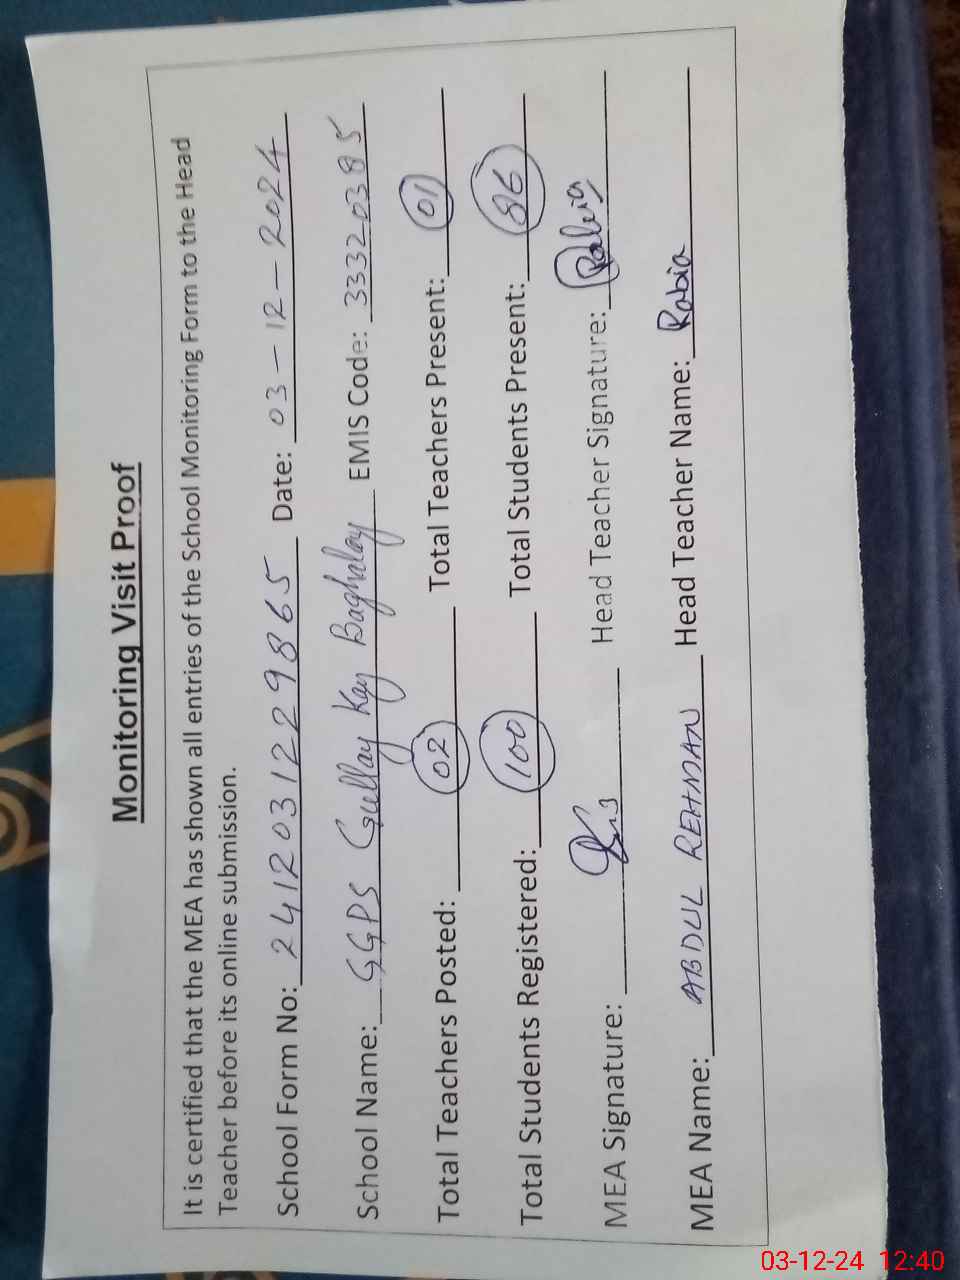 Monitoring Visit Proof
It is certified that the MEA has shown all entries of the School Monitoring Form to the Head
Teacher before its online submission.
School Form No: 241203122 9865 Date: 03-12-2024
School Name: GGPS Gullay Kay Baghday EMIS Code: 33320385
Total Teachers Posted: 02 Total Teachers Present: 01
Total Students Registered: 100 Total Students Present: 86
MEA Signature: Head Teacher Signature: Rabia
MEA Name: ABDUL REHMAN Head Teacher Name: Rabia
03-12-24 12:40